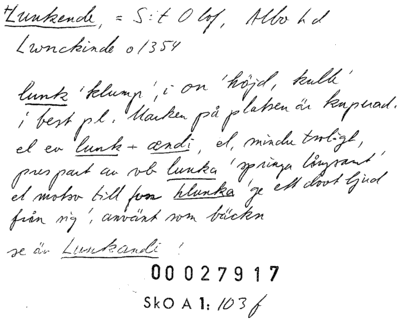 Lunkende, = S:t Olof, Albo hd
Lwnckinde o/1354
lunk 'klump', i on 'höjd, kulle'
i best pl. Marken på platsen är kuperad.
el ev lunk + ændi, el, mindre troligt,
pres part av vb lunka 'springa långsamt'
el motsv till fsv hlunka 'ge ett dovt ljud
från sig', använt som bäckn
se äv Lunkandi !
00027917
SkO A 1: 103 f